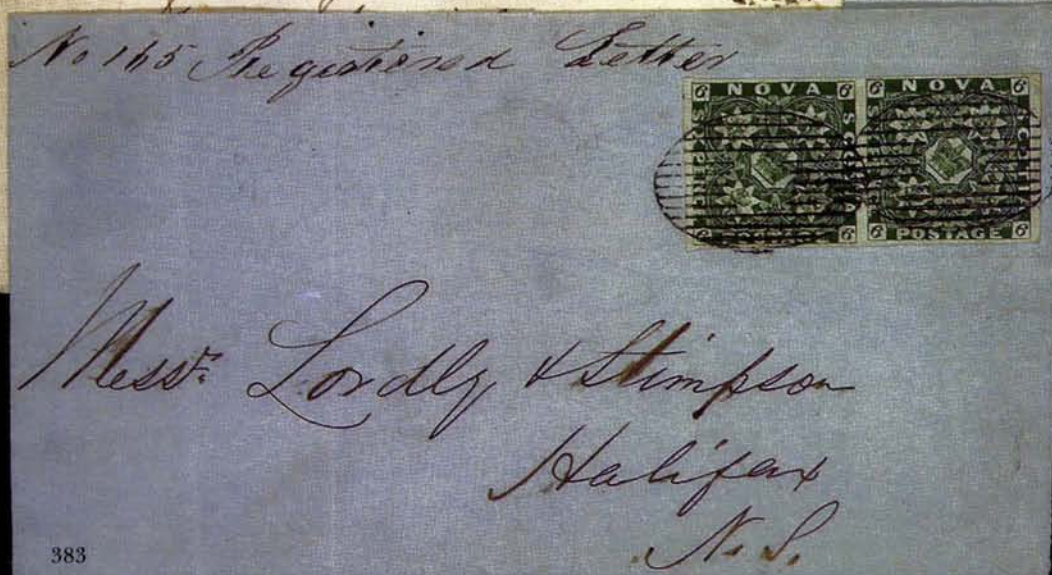 No 165 Registered Letter
6 NOVA 6 6 NOVA 6
SCOTIA SCOTIA
6 POSTAGE 6 6 POSTAGE 6
Messrs Lordly & Stimpson
Halifax
N.S.
383